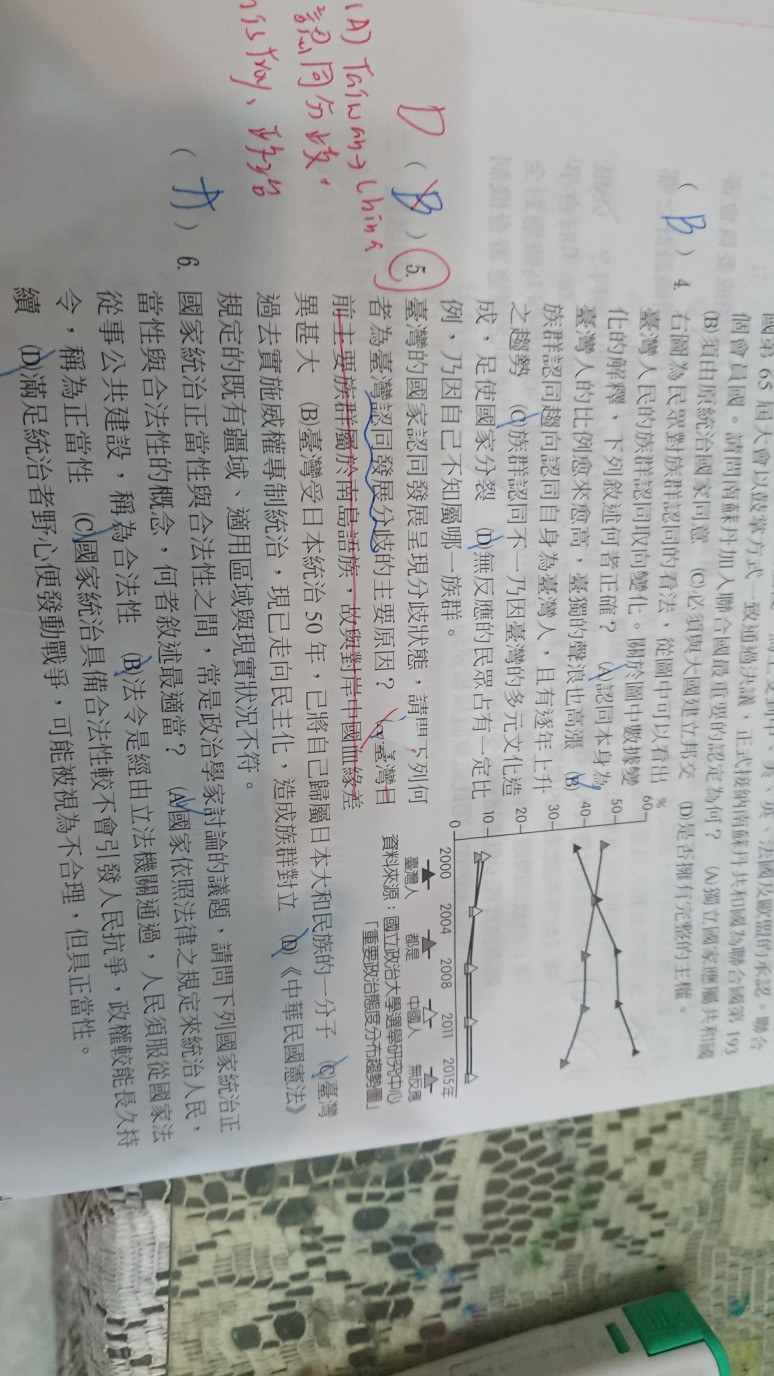 國第 65 屆大會以鼓掌方式一致通過決議,正式接納南蘇丹共和國為聯合國第 193
個會員國。請問南蘇丹加入聯合國最重要的認定為何? (A)獨立國家應屬共和國
(B)須由原統治國家同意 (C)必須與大國建立邦交 (D)是否擁有完整的主權。
( B ) 4. 右圖為民眾對族群認同的看法,從圖中可以看出
臺灣人民的族群認同取向變化。關於圖中數據變
化的解釋,下列敘述何者正確? (A)認同本身為
臺灣人的比例愈來愈高,臺獨的聲浪也高漲 (B)
族群認同趨向認同自身為臺灣人,且有逐年上升
之趨勢 (C)族群認同不一乃因臺灣的多元文化造
成,足使國家分裂 (D)無反應的民眾占有一定比
例,乃因自己不知屬哪一族群。
%
60
50
40
30
20
10
0
2000 2004 2008 2011 2015年
臺灣人 都是 中國人 無反應
資料來源:國立政治大學選舉研究中心
「重要政治態度分布趨勢圖」
D ( B ) 5. 臺灣的國家認同發展呈現分歧狀態,請問下列何
者為臺灣認同發展分歧的主要原因? (A)臺灣日
前主要族群屬於南島語族,故與對岸中國血緣差
異甚大 (B)臺灣受日本統治 50 年,已將自己歸屬日本大和民族的一分子 (C)臺灣
過去實施威權專制統治,現已走向民主化,造成族群對立 (D)《中華民國憲法》
規定的既有疆域、適用區域與現實狀況不符。
(A) Taiwan→China
認同分歧,
( A ) 6. 國家統治正當性與合法性之間,常是政治學家討論的議題,請問下列國家統治正
當性與合法性的概念,何者敘述最適當? (A)國家依照法律之規定來統治人民,
從事公共建設,稱為合法性 (B)法令是經由立法機關通過,人民須服從國家法
令,稱為正當性 (C)國家統治具備合法性較不會引發人民抗爭,政權較能長久持
續 (D)滿足統治者野心便發動戰爭,可能被視為不合理,但具正當性。